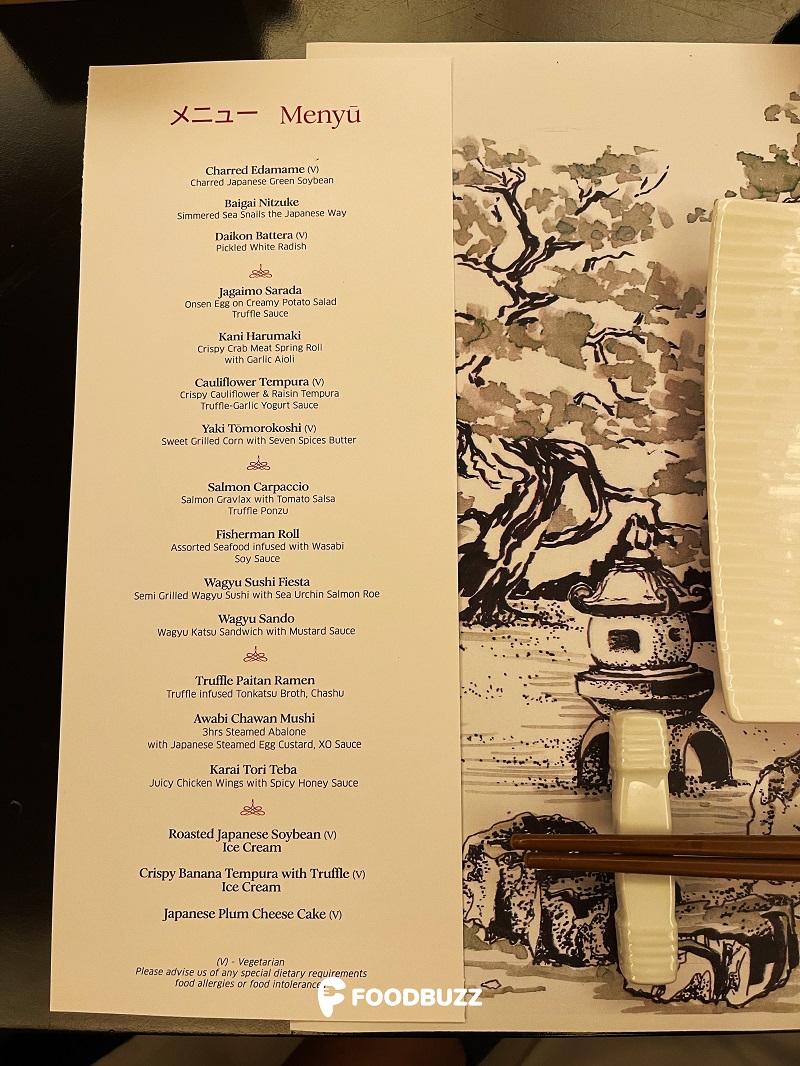 メニュー Menyū
Charred Edamame (V)
Charred Japanese Green Soybean
Baigai Nitzuke
Simmered Sea Snails the Japanese Way
Daikon Battera (V)
Pickled White Radish
Jagaimo Sarada
Onsen Egg on Creamy Potato Salad
Truffle Sauce
Kani Harumaki
Crispy Crab Meat Spring Roll
with Garlic Aioli
Cauliflower Tempura (V)
Crispy Cauliflower & Raisin Tempura
Truffle-Garlic Yogurt Sauce
Yaki Tōmorokoshi (V)
Sweet Grilled Corn with Seven Spices Butter
Salmon Carpaccio
Salmon Gravlax with Tomato Salsa
Truffle Ponzu
Fisherman Roll
Assorted Seafood infused with Wasabi
Soy Sauce
Wagyu Sushi Fiesta
Semi Grilled Wagyu Sushi with Sea Urchin Salmon Roe
Wagyu Sando
Wagyu Katsu Sandwich with Mustard Sauce
Truffle Paitan Ramen
Truffle infused Tonkatsu Broth, Chashu
Awabi Chawan Mushi
3hrs Steamed Abalone
with Japanese Steamed Egg Custard, XO Sauce
Karai Tori Teba
Juicy Chicken Wings with Spicy Honey Sauce
Roasted Japanese Soybean (V)
Ice Cream
Crispy Banana Tempura with Truffle (V)
Ice Cream
Japanese Plum Cheese Cake (V)
(V) - Vegetarian
Please advise us of any special dietary requirements
food allergies or food intolerances
FOODBUZZ